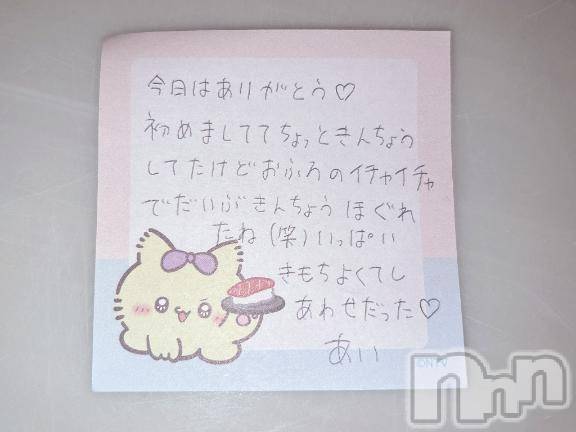 今日はありがとう♡
初めましててちょっときんちょう
してたけどおふろのイチャイチャ
でだいぶきんちょうほぐれ
たね(笑)いっぱい
きもちよくてし
あわせだった♡
あい
©NTV